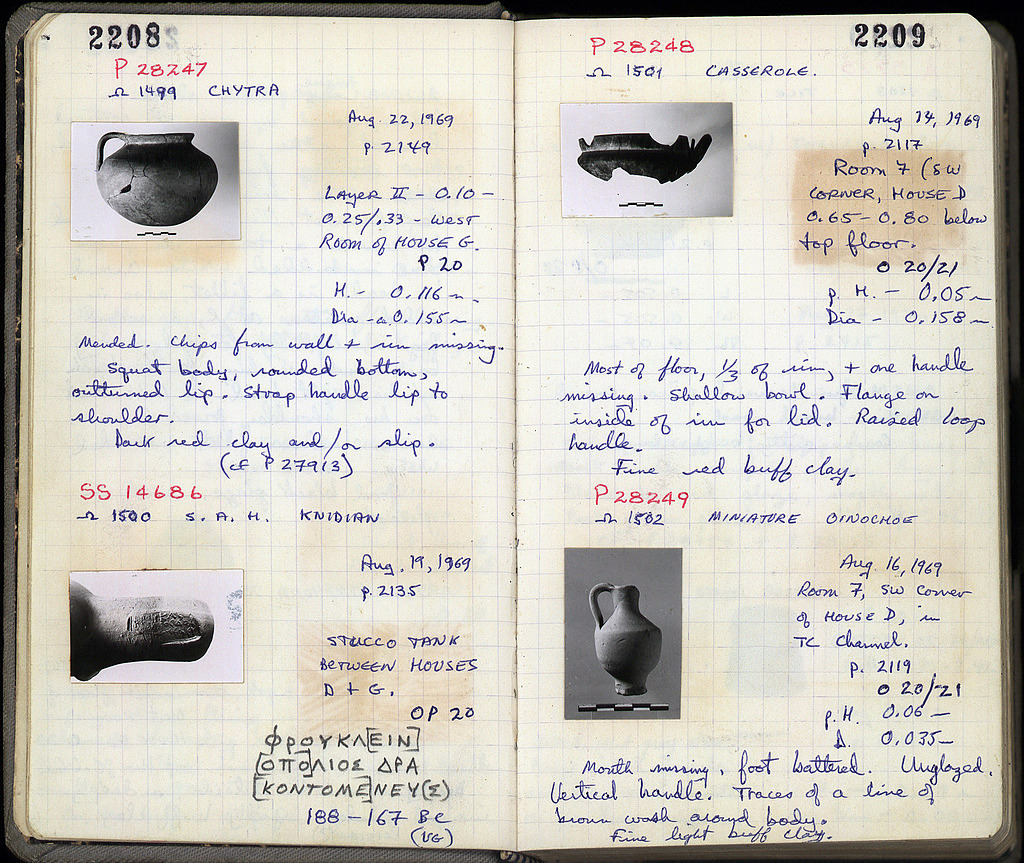 2208
P 28247
Ω 1499 CHYTRA
Aug. 22, 1969
p. 2149
Layer II – 0.10 –
0.25/.33 – West
Room of HOUSE G.
P 20
H. – 0.116 m.
Dia – a. 0.155 m
Mended. Chips from wall + rim missing.
Squat body, rounded bottom,
outturned lip. Strap handle lip to
shoulder.
Dark red clay and/or slip.
(cf P 27913)
SS 14686
Ω 1500 S. A. H. KNIDIAN
Aug. 19, 1969
p. 2135
STUCCO TANK
BETWEEN HOUSES
D + G.
OP 20
ΦΡΟΥΚΛ[ΕΙΝ]
[ΟΠΟ]ΛΙΟΣ ΔΡΑ
[ΚΟΝΤΟΜΕ]ΝΕΥ(Σ)
188 – 167 BC
(VG)
2209
P 28248
Ω 1501 CASSEROLE.
Aug 14, 1969
p. 2117
Room 7 (SW
CORNER, HOUSE D
0.65 – 0.80 below
top floor.
O 20/21
p. H. – 0.05 m
Dia – 0.158 m.
Most of floor, 1/3 of rim, + one handle
missing. Shallow bowl. Flange on
inside of rim for lid. Raised loop
handle.
Fine red buff clay.
P 28249
Ω 1502 MINIATURE OINOCHOE
Aug. 16, 1969
Room 7, SW Corner
of HOUSE D, in
TC Channel.
p. 2119
O 20/21
p. H. 0.06 –
D. 0.035 –
Mouth missing, foot battered. Unglazed.
Vertical handle. Traces of a line of
brown wash around body.
Fine light buff clay.